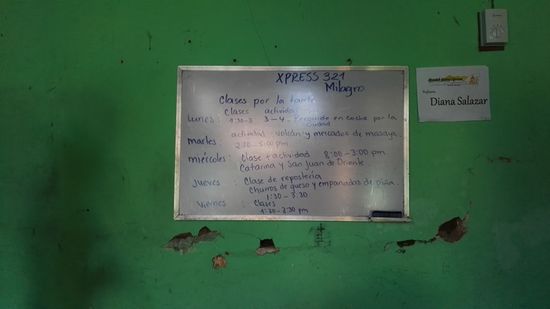 XPRESS 321
Milagro
Clases por la tarde
Clases actividad
lunes: 1:30-3 3-4 Recorrido en coche por la
ciudad
martes: actividad volcán y mercados de masaya
2:30-5:00 pm
miércoles: Clase + actividad 8:00-3:00 pm
Catarina y San Juan de Oriente
Jueves : Clase de repostería
Churros de queso y empanadas de piña.
1:30-3:30
Viernes : Clases
1:30-3:30 pm
Diana Salazar